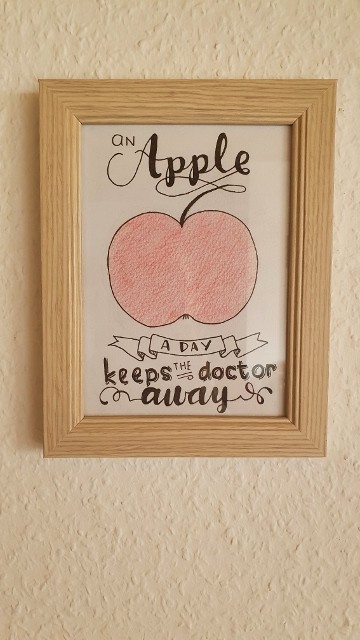 an Apple
A DAY
keeps THE doctor
away